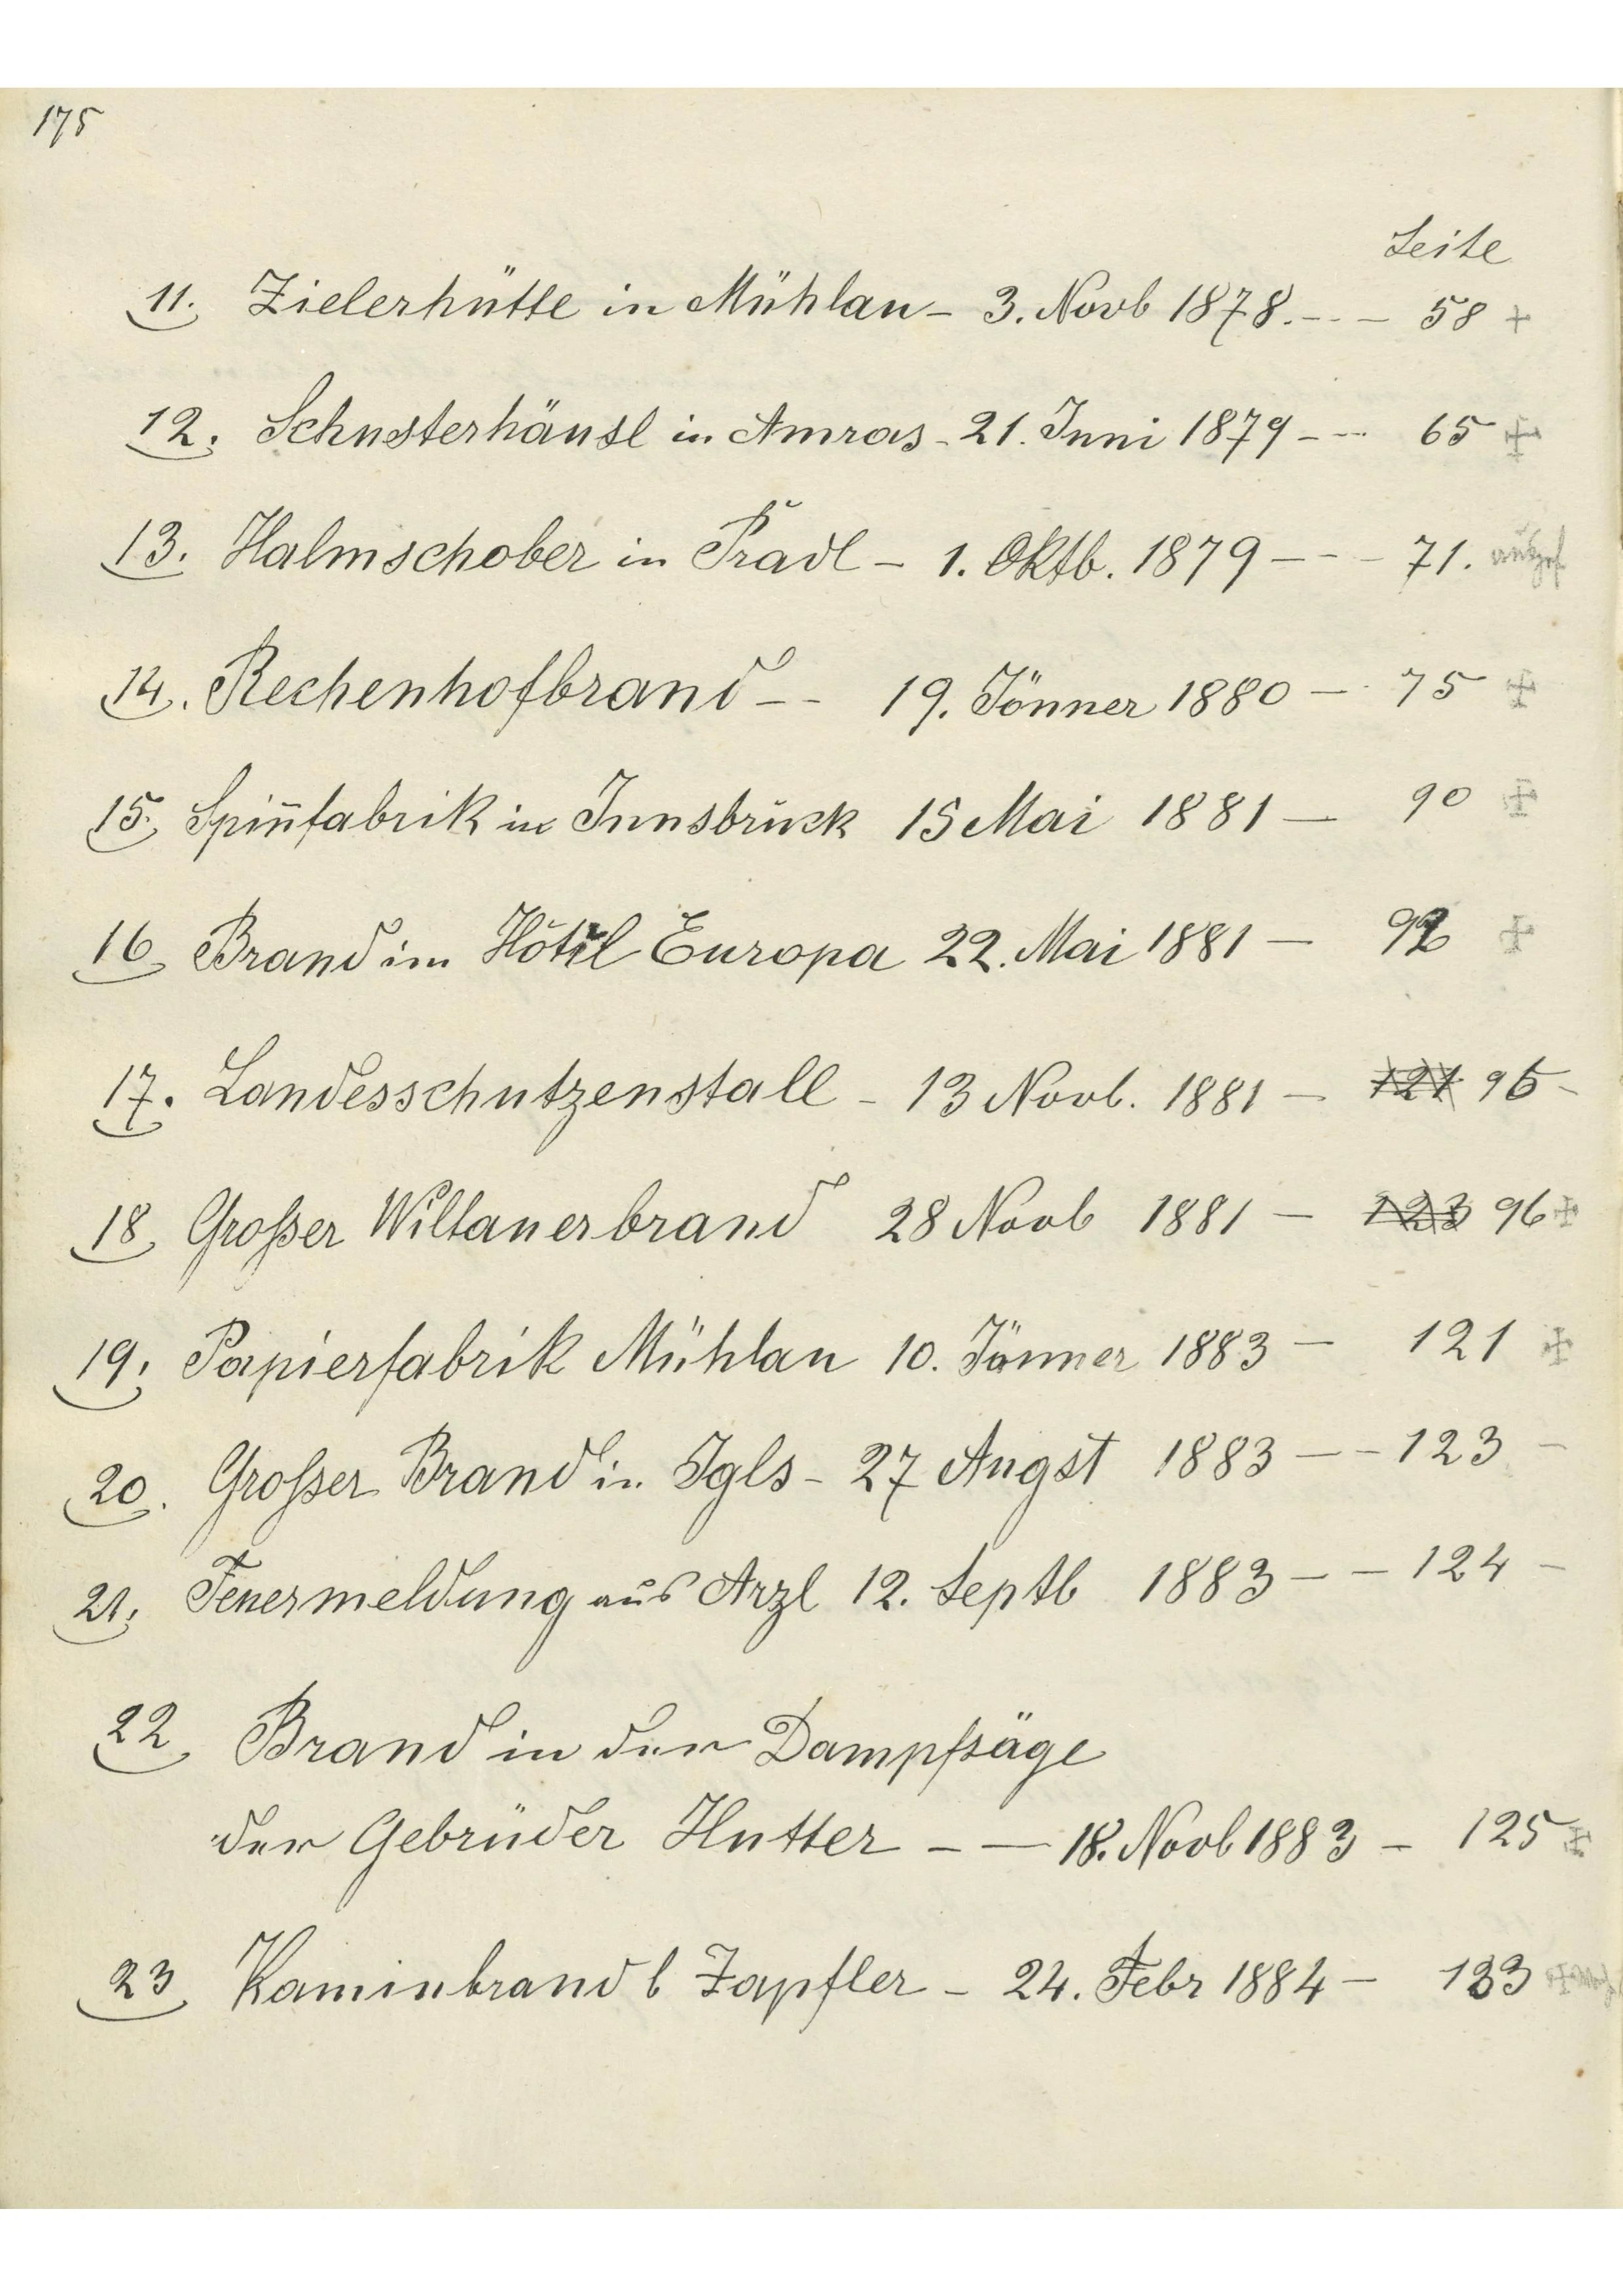 175
Seite
11. Zielerhütte in Mühlau - 3. Novb 1878. - - - 58 +
12. Schusterhäusl in Amras - 21. Juni 1879 - - - 65 +
13. Halmschober in Pradl - 1. Oktb. 1879 - - - 71.
14. Rechenhofbrand - - 19. Jänner 1880 - - 75 +
15. Spiñfabrik in Innsbruck 15 Mai 1881 - 90 +
16 Brand im Hôtel Europa 22. Mai 1881 - 92 +
17. Landesschutzenstall - 13 Novb. 1881 - 121 95 -
18 Großer Wiltauerbrand 28 Novb 1881 - 123 96 +
19. Papierfabrik Mühlau 10. Jänner 1883 - 121 +
20. Großer Brand in Igls - 27 Augst 1883 - - 123 -
21. Feuermeldung aus Arzl 12. Septb 1883 - - 124 -
22 Brand in der Dampfsäge
der Gebrüder Hutter - - 18. Novb 1883 - 125 +
23 Kaminbrand b Zapfler - 24. Febr 1884 - 133 +